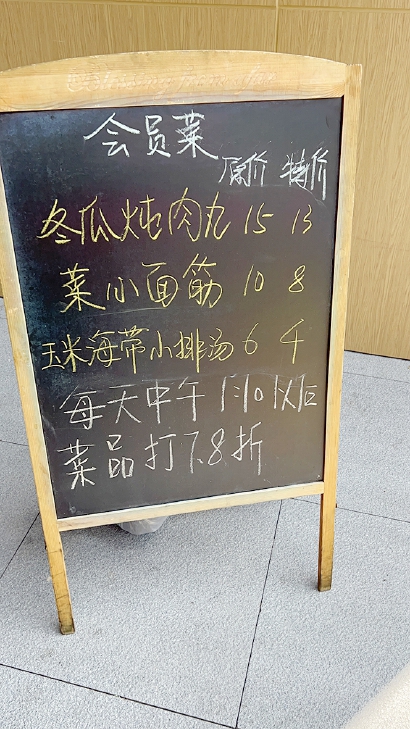 会员菜
原价 特价
冬瓜炖肉丸 15 13
菜小面筋 10 8
玉米海带小排汤 6 4
每天中午1:10以后
菜品打7.8折